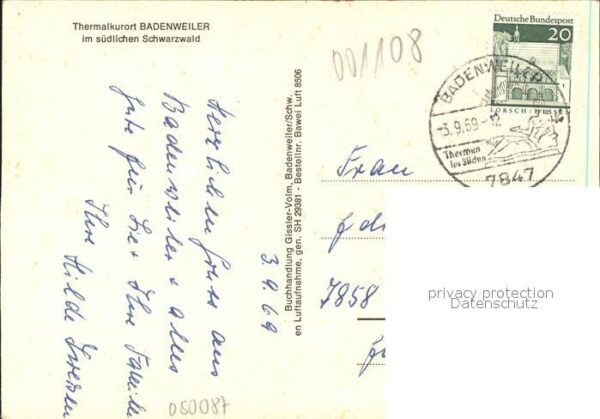 Thermalkurort BADENWEILER
im südlichen Schwarzwald
001108
Deutsche Bundespost
20
LORSCH/HESSEN
BADENWEILER
-3.9.69-12
Thermen
im Süden
7847
3.9.69
Herzlichen Gruss aus
Badenweiler + alles
Gute für Sie + Ihre Familie
Ihre Hilde
Buchhandlung Gissler-Volm, Badenweiler/Schw.
en Luftaufnahme, gen. SH 29381 - Bestellnr. Bawei Luft 8506
Frau
7858
privacy protection
Datenschutz
050087